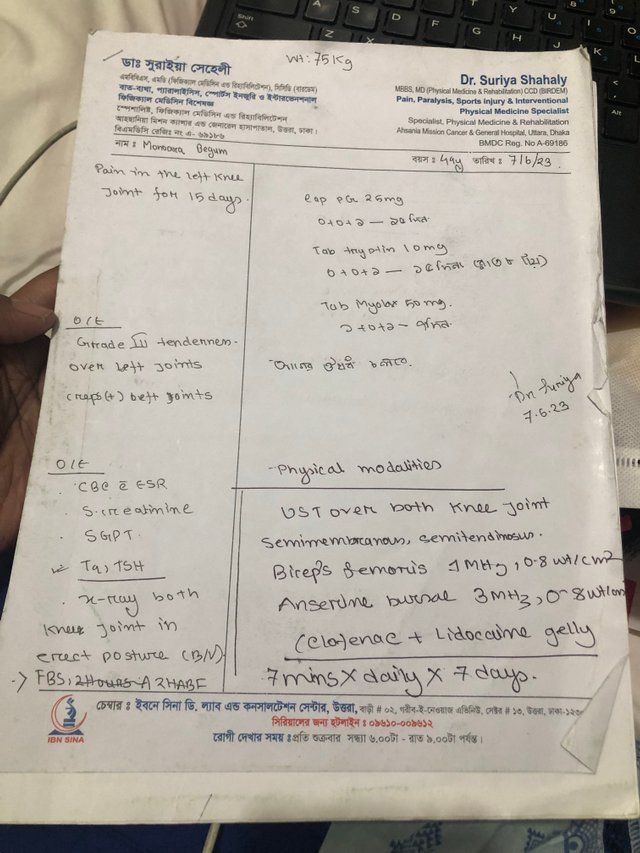 Wt: 75kg
ডাঃ সুরাইয়া সেহেলী
এমবিবিএস, এমডি (ফিজিক্যাল মেডিসিন এন্ড রিহ্যাবিলিটেশন), সিসিডি (বারডেম)
বাত-ব্যথা, প্যারালাইসিস, স্পোর্টস ইনজুরি ও ইন্টারভেনশনাল
ফিজিক্যাল মেডিসিন বিশেষজ্ঞ
স্পেশালিষ্ট, ফিজিক্যাল মেডিসিন এন্ড রিহ্যাবিলিটেশন
আহছানিয়া মিশন ক্যান্সার এন্ড জেনারেল হাসপাতাল, উত্তরা, ঢাকা।
বিএমডিসি রেজিঃ নং এ- ৬৯১৮৬
Dr. Suriya Shahaly
MBBS, MD (Physical Medicine & Rehabilitation) CCD (BIRDEM)
Pain, Paralysis, Sports Injury & Interventional
Physical Medicine Specialist
Specialist, Physical Medicine & Rehabilitation
Ahsania Mission Cancer & General Hospital, Uttara, Dhaka
BMDC Reg. No A-69186
নাম : Begum বয়স : 49y তারিখ : 7/6/23
Pain in the left knee
Joint for 15 days.
O/E
Grade III tenderness
over left joints
creps(+) left joints
O/E
CBC c̄ ESR
S. creatinine
SGPT
T4, TSH
x-ray both
Knee Joint in
erect posture (B/V)
FBS, 2HABF
cap PG 25mg
০+০+১ — ১৫দিন
Tab tryptin 10mg
০+০+১ — ১৫দিন
Tab Myolax 50mg.
১+০+১ —
আগের ঔষধ চলবে.
Dr. Suriya
7.6.23
Physical modalities
UST over both Knee Joint
Semimembranous, semitendinosus.
Bicep's femoris 1MHz, 0.8 wt/cm2
Anserine bursae 3MHz, 0.8 wt/cm
(Clofenac + Lidocaine gelly
7mins x daily x 7 days.
IBN SINA
চেম্বার : ইবনে সিনা ডি. ল্যাব এন্ড কনসালটেশন সেন্টার, উত্তরা, বাড়ী # ০২, গরীব-ই-নেওয়াজ এভিনিউ, সেক্টর # ১৩, উত্তরা, ঢাকা-১২৩
সিরিয়ালের জন্য হটলাইন : ০৯৬১০-০০৯৬১২
রোগী দেখার সময় : প্রতি শুক্রবার সন্ধ্যা ৬.০০টা - রাত ৯.০০টা পর্যন্ত।